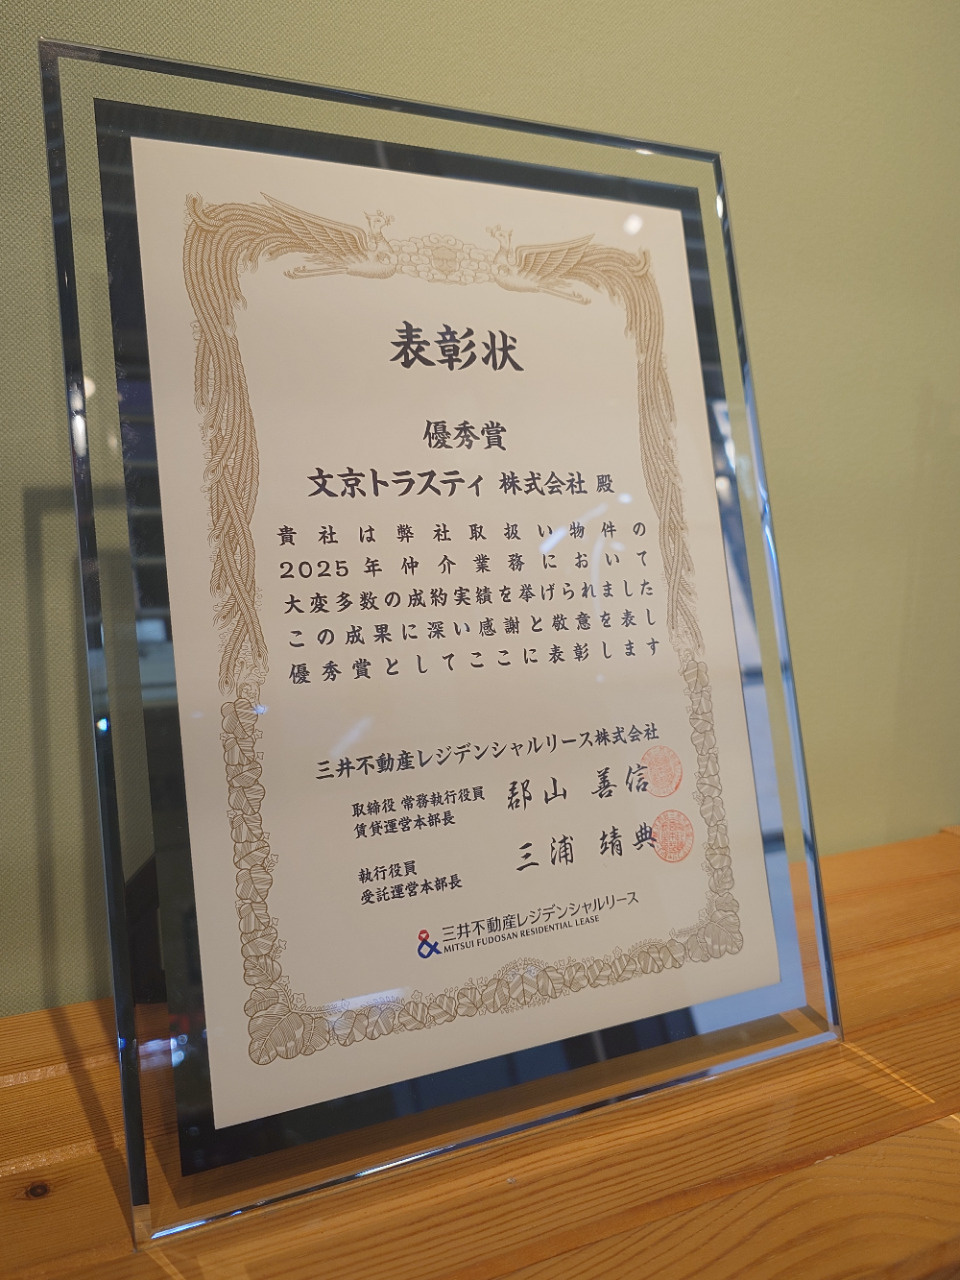 表彰状
優秀賞
文京トラスティ 株式会社 殿
貴社は弊社取扱い物件の
2025年仲介業務において
大変多数の成約実績を挙げられました
この成果に深い感謝と敬意を表し
優秀賞としてここに表彰します
三井不動産レジデンシャルリース株式会社
取締役 常務執行役員
賃貸運営本部長
郡山 善信
執行役員
受託運営本部長
三浦 靖典
三井不動産レジデンシャルリース
MITSUI FUDOSAN RESIDENTIAL LEASE